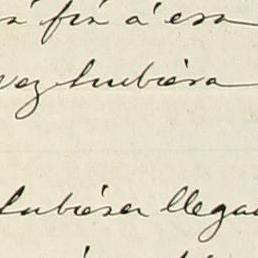 á fin á esa
vez hubiésa
hubiésen llega